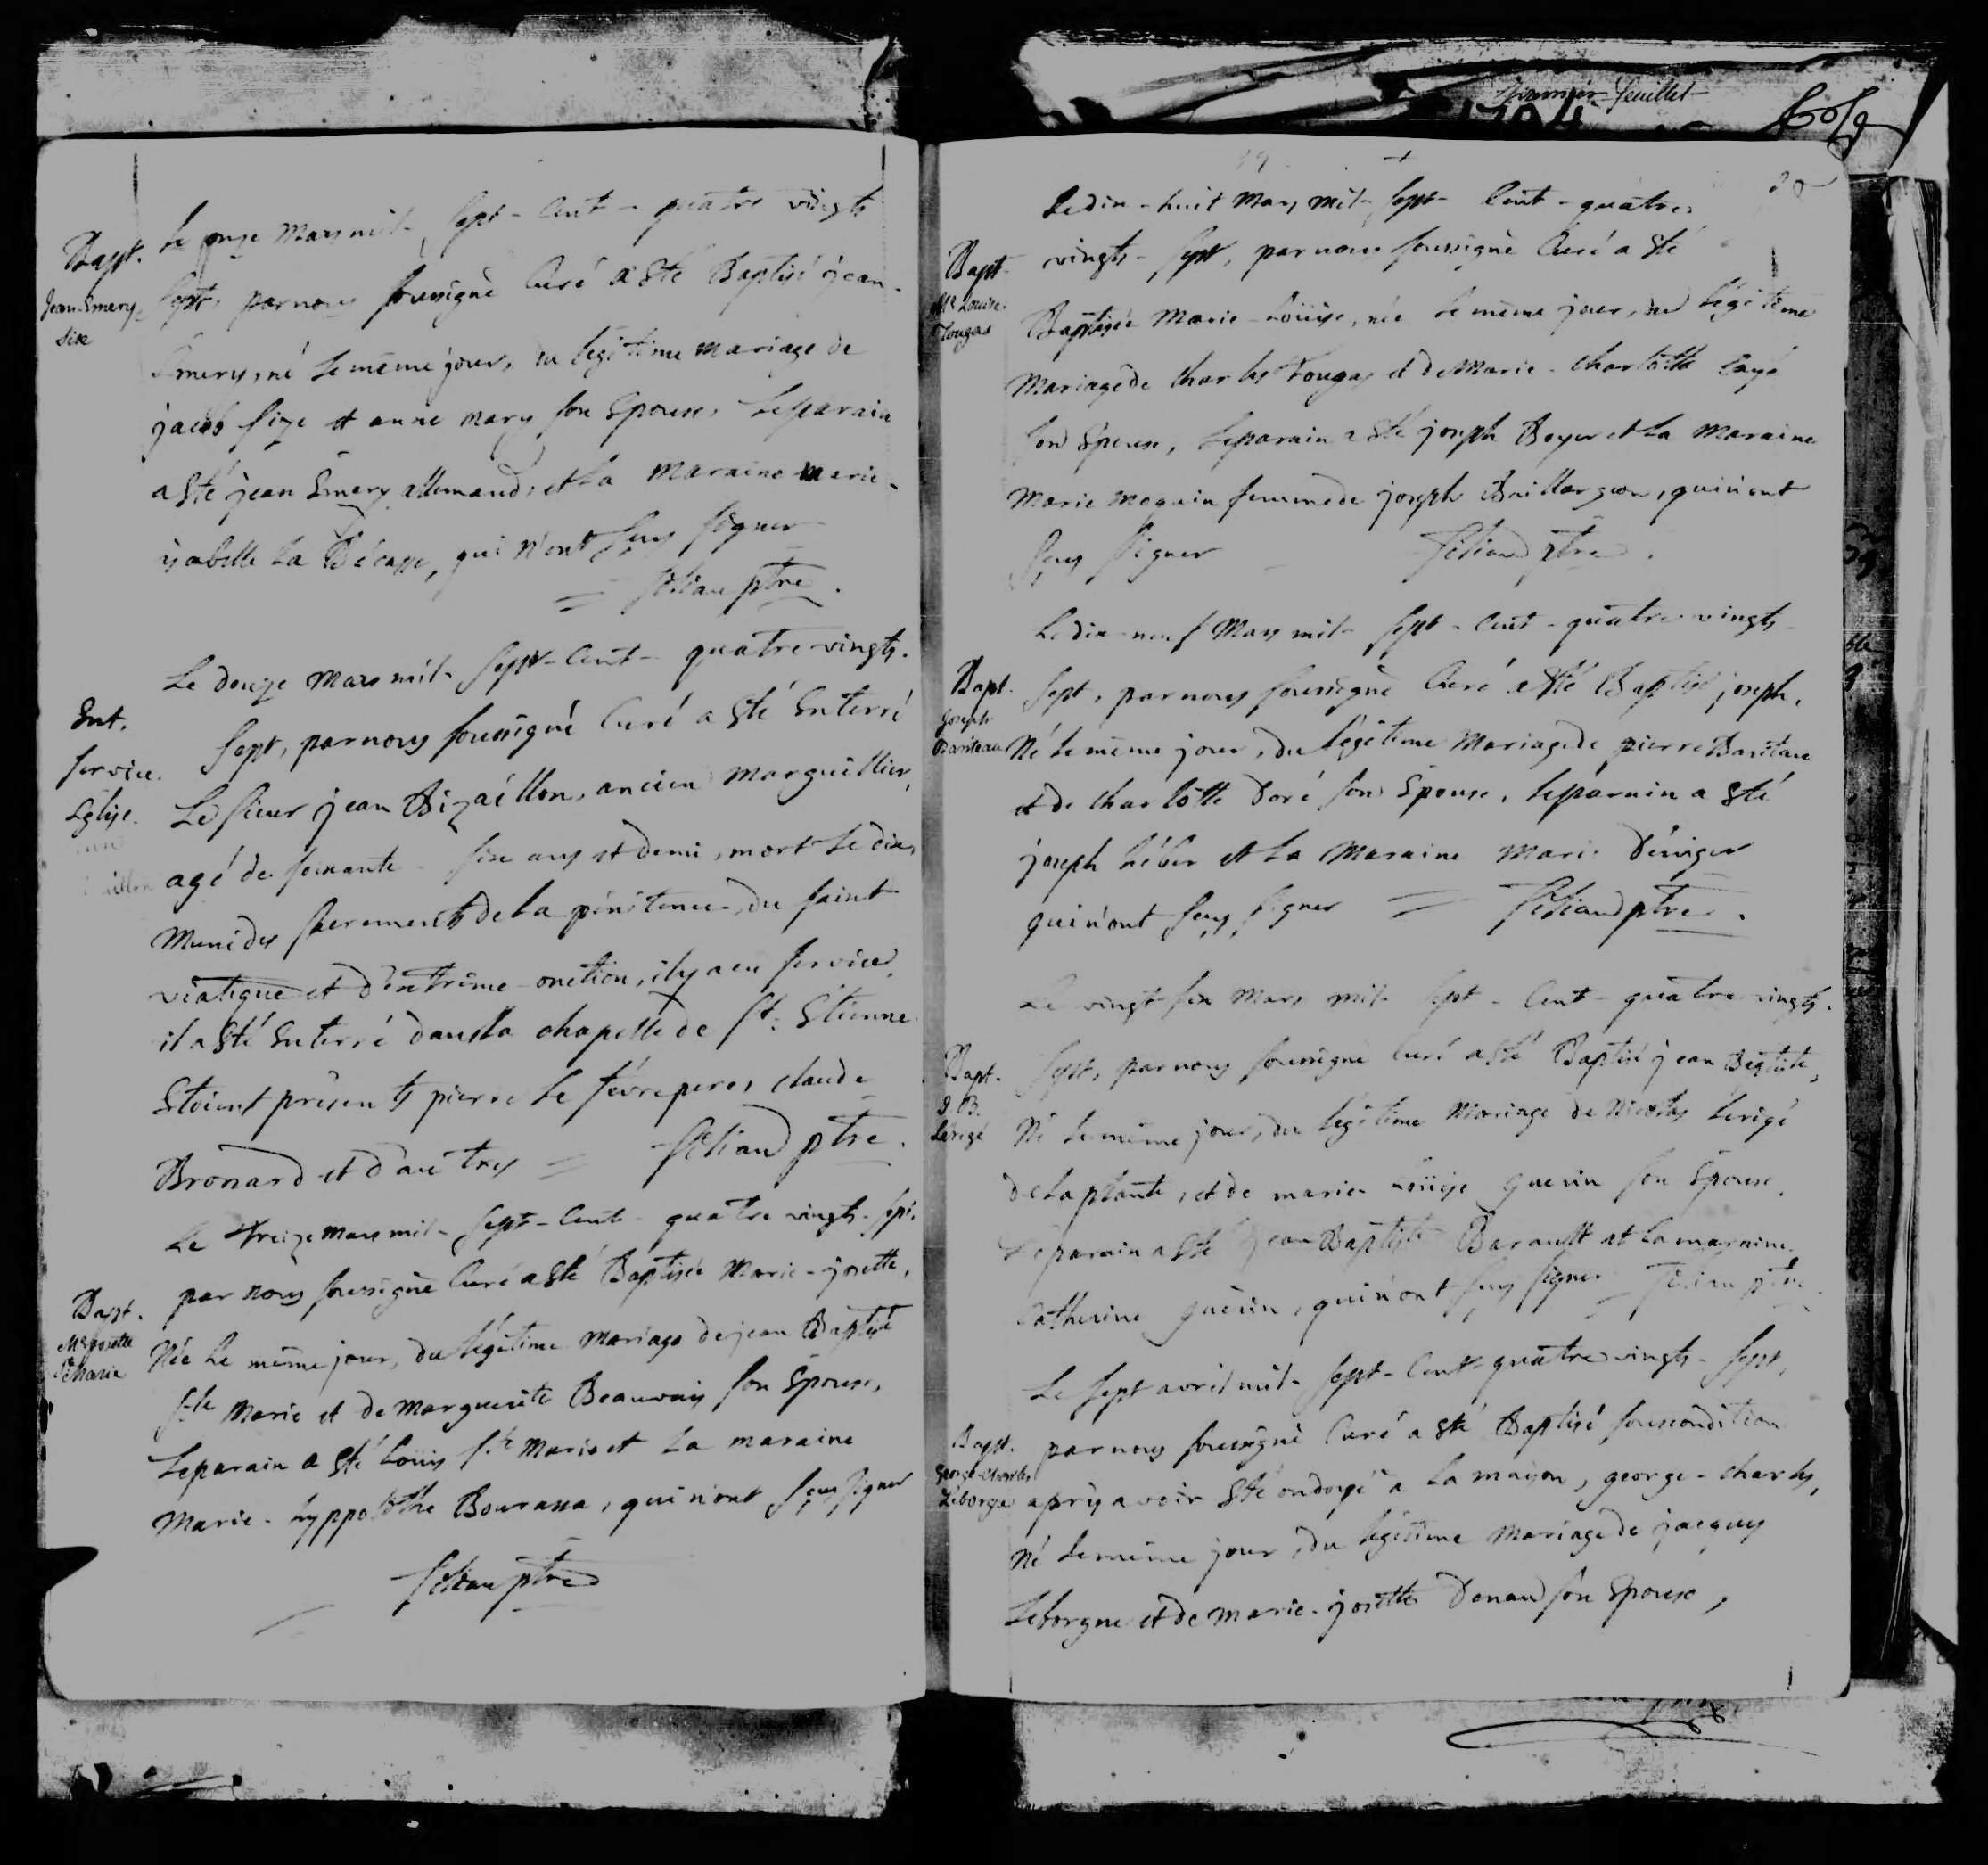 Bapt.
Jean Emery
Sise
Le onze Mars mil- sept- Cent- quatre vingts
sept, par nous soussigné Curé a Eté Baptisé jean-
Emery, né le même jour, du légitime mariage de
jacob size et anne mary son Epouse, Le parain
a Eté jean Emery allemand, et La Maraine Marie-
ysabelle La Bécasse, qui n'ont sçus signer
= filiau ptre.
Ent.
Service.
Eglise.
Le douze Mars mil- sept- Cent- quatre-vingts.
Sept, par nous soussigné Curé a Eté Enterré
Le sieur jean Bizaillon, ancien Marguillier,
agé de soixante- six ans et demi, mort le dix,
Muni des sacrements de La pénitence, du saint
viatique et d'extrême-onction, il y a eu service.
il a Eté Enterré dans La chapelle de St. Etienne
Etoient présents pierre Le fevre pere, claude
Bronsard et d'autres = filiau ptre.
Bapt.
Me josette
Ste Marie
Le treize Mars mil- sept- Cent- quatre vingts- sept,
par nous soussigné Curé a Eté Baptisée Marie-josette,
Née Le même jour, du Légitime Mariage de jean Baptiste
Ste Marie et de Marguerite Beauvais son Epouse,
Le parain a Eté Loüis Ste Marie et La maraine
Marie- hyppolithe Bourassa, qui n'ont sçus signer
filiau ptre
premier feuillet
20
Bapt.
Me Louise
Tougas
Le dix-huit Mars mil- sept- Cent- quatre
vingts- sept, par nous soussigné Curé a Eté
Baptisée Marie-Loüise, née Le même jour, du Légitime
Mariage de Charles Tougas et de Marie- Charlotte
son Epouse, Le parain a Eté joseph Boyer et La Maraine
Marie moquin femme de joseph Baillargeon, qui n'ont
sçus signer filiau ptre.
Bapt.
Joseph
Bariteau
Le dix-neuf Mars mil- sept- Cent- quatre vingts-
sept, par nous soussigné Curé a Eté Baptisé joseph,
Né le même jour, du légitime Mariage de pierre Bariteau
et de Charlotte Doré son Epouse, Le parain a Eté
joseph héber et La Maraine Marie Déniger
qui n'ont sçus signer = filiau ptre.
Bapt.
J. B.
Lérigé
Le vingt six Mars mil- sept- Cent- quatre vingts-
sept, par nous soussigné Curé a Eté Baptisé jean Baptiste,
Né Le même jour, du Légitime Mariage de Nicolas Lerigé
de Laplante, et de marie Loüise guerin son Epouse.
Le parain a Eté jean Baptiste Barault et La maraine
Catherine guérin, qui n'ont sçus signer filiau ptre.
Bapt.
George-Charles
Leborgne
Le sept avril mil- sept- Cent quatre vingts- sept,
par nous soussigné Curé a Eté Baptisé sous condition
après avoir Eté ondoyé a La maison, george-charles,
Né Le même jour, du légitime Mariage de jacques
Leborgne et de Marie-josette Denau son Epouse,